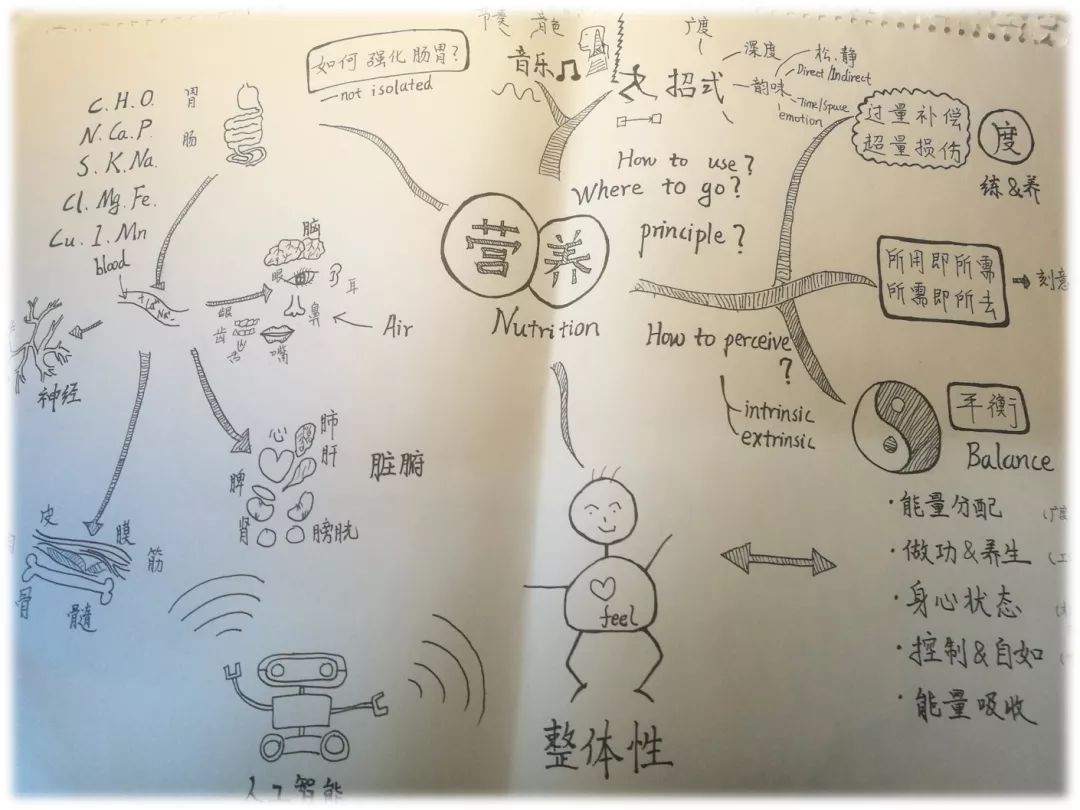 如何强化肠胃?
not isolated
C. H. O.
N. Ca. P.
S. K. Na.
Cl. Mg. Fe.
Cu. I. Mn
胃
肠
blood
脑
眼
耳
鼻
齿
舌
嘴
Air
神经
心
肺
肝
脾
肾
膀胱
脏腑
皮
膜
筋
骨
髓
人工智能
音色
音乐
招式
广度
深度
韵味
松.静
Direct/Indirect
Time/Space
emotion
How to use?
Where to go?
principle?
营养
Nutrition
过量补偿
超量损伤
度
练&养
所用即所需
所需即所去
刻意
How to perceive
?
intrinsic
extrinsic
平衡
Balance
·能量分配
·做功&养生
·身心状态
·控制&自如
·能量吸收
feel
整体性